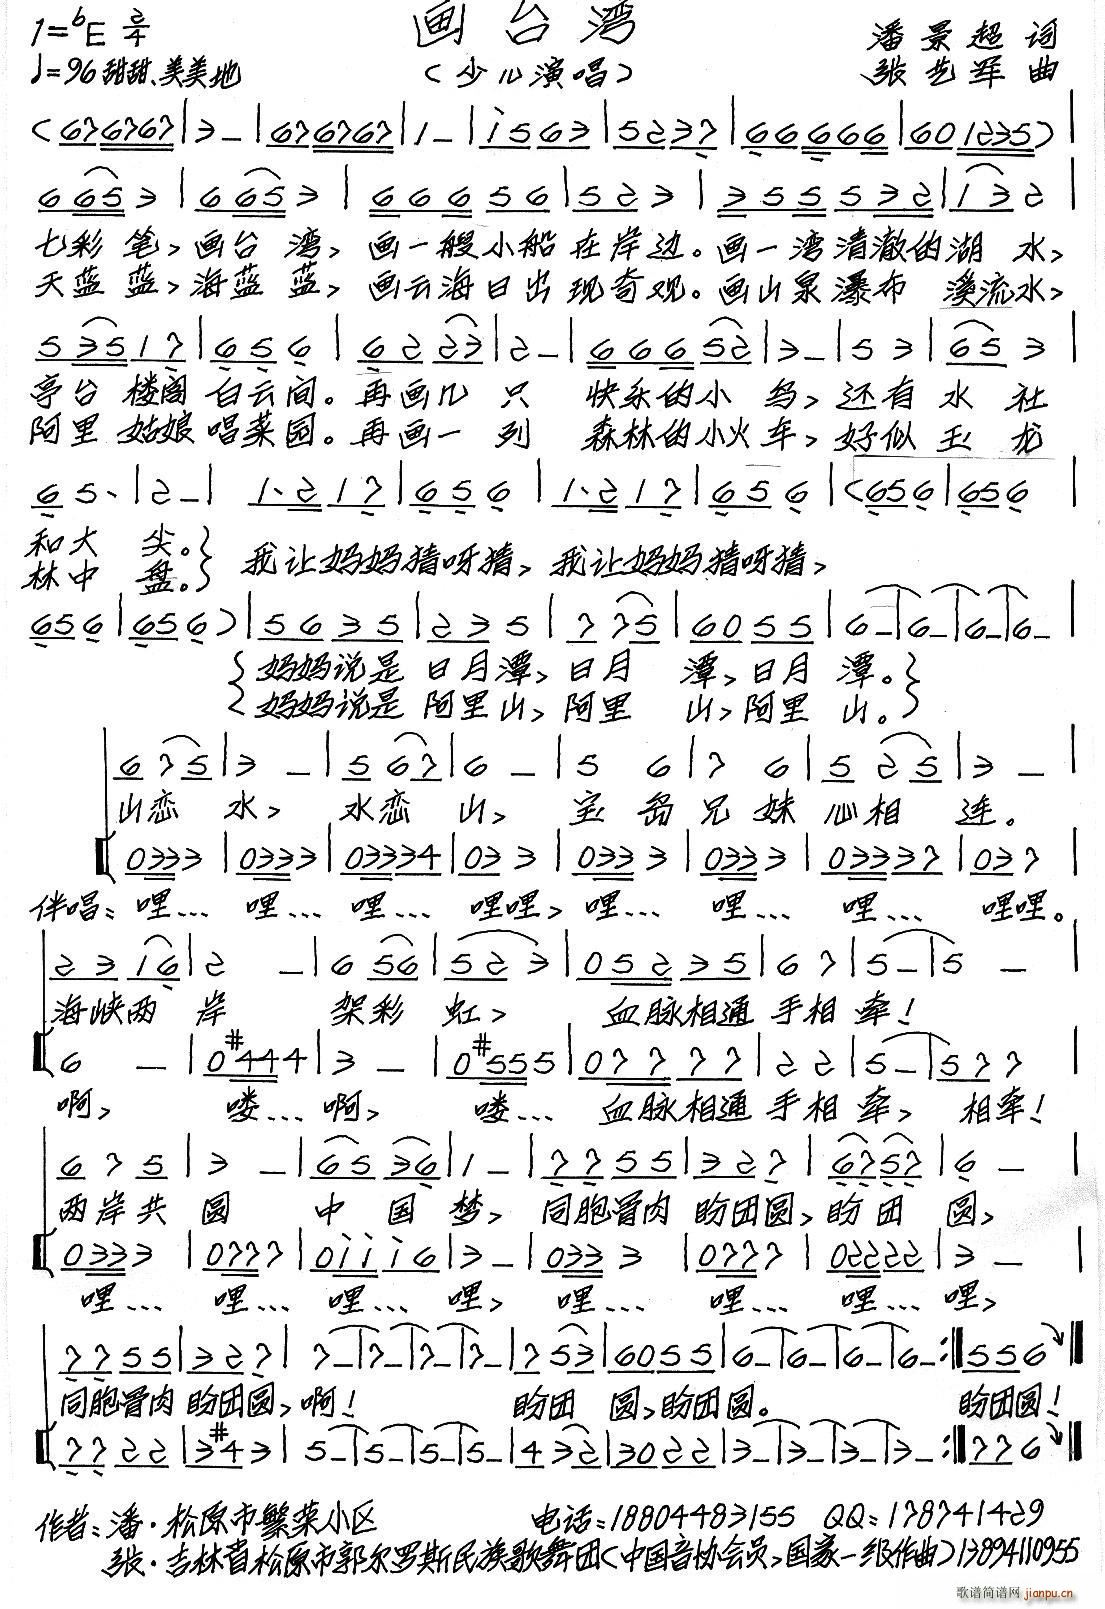 画台湾
1=♭E 2/4
♩=96 甜甜、美美地
（少儿演唱）
潘景超 词
张艺军 曲
(676767|3–|676767|1–|i563|5237|66666|601235)|
6653|6653|66656|523|355532|132|
七彩笔,画台湾,画一艘小船在岸边。画一湾清澈的湖水,
天蓝蓝,海蓝蓝,画云海日出现奇观。画山泉瀑布溪流水,
53517|656|6223|2–|666652|3–|53|653|
亭台楼阁白云间。再画几只快乐的小鸟,还有水社
阿里姑娘唱菜园。再画一列森林的小火车,好似玉龙
65·|2–|1·217|656|1·217|656|(656|656|
和大尖。
林中盘。
我让妈妈猜呀猜,我让妈妈猜呀猜,
656|656)|5635|235|775|6055|6–|6–|6–|6–|
妈妈说是日月潭,日月潭,日月潭。
妈妈说是阿里山,阿里山,阿里山。
675|3–|567|6–|56|76|525|3–|
山恋水,水恋山,宝岛兄妹心相连。
0333|0333|03334|033|0333|0333|03337|037|
伴唱:哩…哩…哩…哩哩,哩…哩…哩…哩哩。
2316|2–|656|523|05235|67|5–|5–|
海峡两岸架彩虹,血脉相通手相牵!
6–|0#444|3–|0#555|07777|22|5–|577|
啊,喽…啊,喽…血脉相通手相牵,相牵!
675|3–|6536|1–|7755|327|6757|6–|
两岸共圆中国梦,同胞骨肉盼团圆,盼团圆,
0333|0777|0iii6|3–|0333|0777|02222|3–|
哩…哩…哩…哩,哩…哩…哩…哩,
7755|327|7–|7–|7–|7–|753|6055|6–|6–|6–|6–:‖556‖
同胞骨肉盼团圆,啊!盼团圆,盼团圆。盼团圆!
7722|3#43|5–|5–|5–|5–|432|3022|3–|3–|3–|3–:‖776‖
作者:潘·松原市繁荣小区 电话:18804483155 QQ:178741429
张·吉林省松原市郭尔罗斯民族歌舞团(中国音协会员,国家一级作曲)13894110955
歌谱简谱网
jianpu.cn